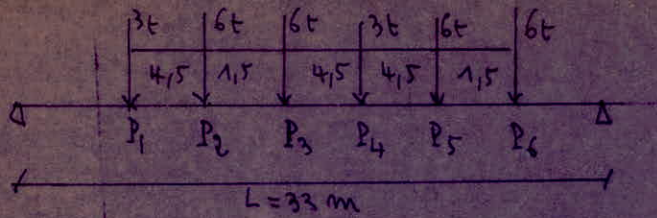 3t 6t 6t 3t 6t 6t
4,5 1,5 4,5 4,5 1,5
P1 P2 P3 P4 P5 P6
L = 33 m